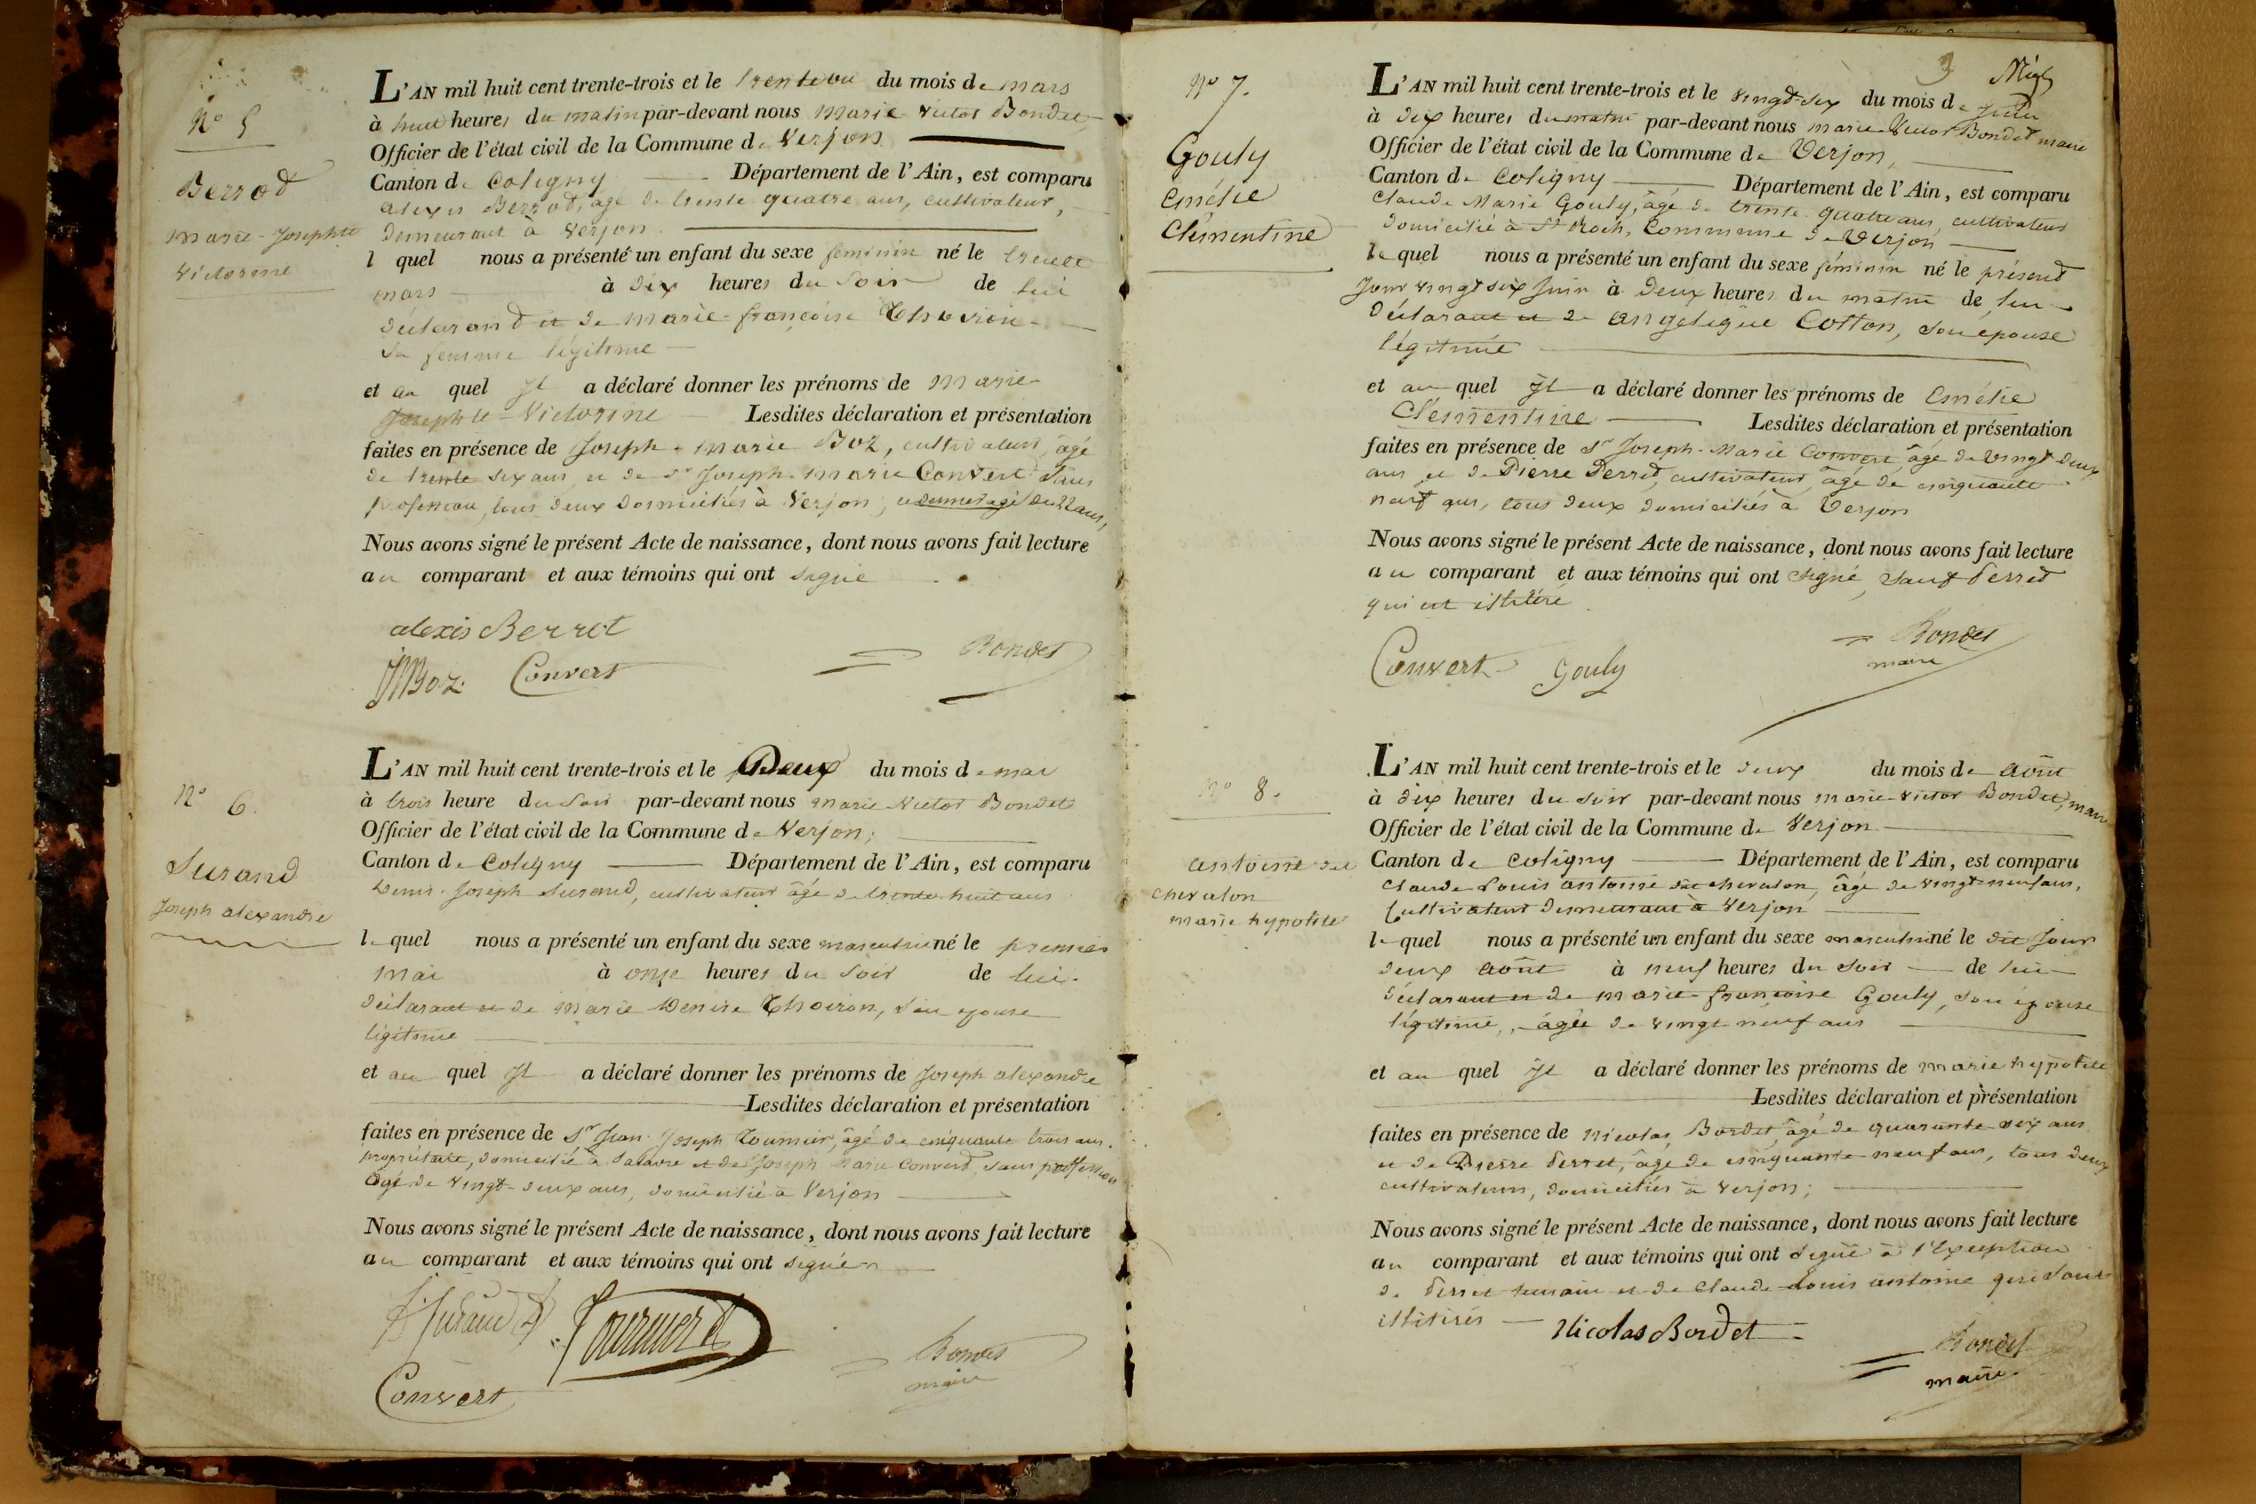 N° 5
Berrod
Marie-Josephte
Victorine
L'AN mil huit cent trente-trois et le trente un du mois de mars
à huit heures du matin par-devant nous Marie Victor Bondet,
Officier de l'état civil de la Commune de Verjon
Canton de Coligny Département de l'Ain, est comparu
alexis Berrod, âgé de trente quatre ans, cultivateur,
demeurant à Verjon
l quel nous a présenté un enfant du sexe feminin né le trente
mars à dix heures du Soir de lui
déclarand et de marie-françoise
sa femme légitime
et au quel Jl a déclaré donner les prénoms de Marie
Josephte-Victorine Lesdites déclaration et présentation
faites en présence de Joseph-marie Boz, cultivateur, âgé
de trente six ans, et de Sr Joseph-marie Convert Sans
profession, tous deux domiciliés à Verjon,
Nous avons signé le présent Acte de naissance, dont nous avons fait lecture
au comparant et aux témoins qui ont signé
alexis Berrot
JMBoz Convert Bondet
N° 6.
Surand
Joseph alexandre
L'AN mil huit cent trente-trois et le Deux du mois de mai
à trois heure du Soir par-devant nous marie Victor Bondet
Officier de l'état civil de la Commune de Verjon;
Canton de Coligny Département de l'Ain, est comparu
Denis-Joseph Surand, cultivateur âgé de trente huit ans
le quel nous a présenté un enfant du sexe masculin né le premier
mai à onze heures du Soir de lui
déclarant et de Marie Denise Thoiron, son epouse
légitime
et au quel Jl a déclaré donner les prénoms de Joseph alexandre
Lesdites déclaration et présentation
faites en présence de Sr Jean-Joseph Tournier, âgé de cinquante trois ans,
propriétaire, domicilié à Salavre et de Joseph Marie Convert, sans profession
âgé de vingt-deux ans, domicilié à Verjon
Nous avons signé le présent Acte de naissance, dont nous avons fait lecture
au comparant et aux témoins qui ont signé
Surand Tournier
Convert Bondet
maire
3
N° 7.
Gouly
Emélie
Clémentine
L'AN mil huit cent trente-trois et le vingt-six du mois de Juin
à dix heures du matin par-devant nous marie Victor Bondet maire
Officier de l'état civil de la Commune de Verjon,
Canton de Coligny Département de l'Ain, est comparu
Claude Marie Gouly, âgé de trente-quatre ans, cultivateur
domicilié à St Roch, Commune de Verjon
le quel nous a présenté un enfant du sexe féminin né le présend
Jour vingt six Juin à Deux heures du matin de lui
Déclarant et de angelique Cotton, son épouse
légitimée
et au quel Jl a déclaré donner les prénoms de Emélie
Clémentine Lesdites déclaration et présentation
faites en présence de Sr Joseph-Marie Convert, âgé de vingt deux
ans, et de Pierre Perret, cultivateur, âgé de cinquante
neuf ans, tous deux domiciliés à Verjon
Nous avons signé le présent Acte de naissance, dont nous avons fait lecture
au comparant et aux témoins qui ont signé, sauf Perret
qui est illitéré
Convert Gouly Bondet
maire
N° 8.
antoine dit
chevalon
marie hypolite
L'AN mil huit cent trente-trois et le deux du mois de août
à dix heures du soir par-devant nous marie-victor Bondet, maire
Officier de l'état civil de la Commune de Verjon
Canton de coligny Département de l'Ain, est comparu
claude Louis antoine dit chevalon, âgé de vingt-neuf ans,
Cultivateur demeurant à Verjon
le quel nous a présenté un enfant du sexe masculin né le dit jour
deux août à neuf heures du soir de lui
déclarant et de marie-françoise Gouly, son épouse
légitime, âgée de vingt-neuf ans
et au quel Jl a déclaré donner les prénoms de marie hypolite
Lesdites déclaration et présentation
faites en présence de nicolas Bordet, âgé de quarante-six ans
et de Pierre Perret, âgé de cinquante neuf ans, tous deux
cultivateurs, domiciliés à Verjon;
Nous avons signé le présent Acte de naissance, dont nous avons fait lecture
au comparant et aux témoins qui ont signé à l'Exception
de Perret temoin et de Claude Louis antoine qui sont
illitirés Nicolas Bordet
Bondet
maire